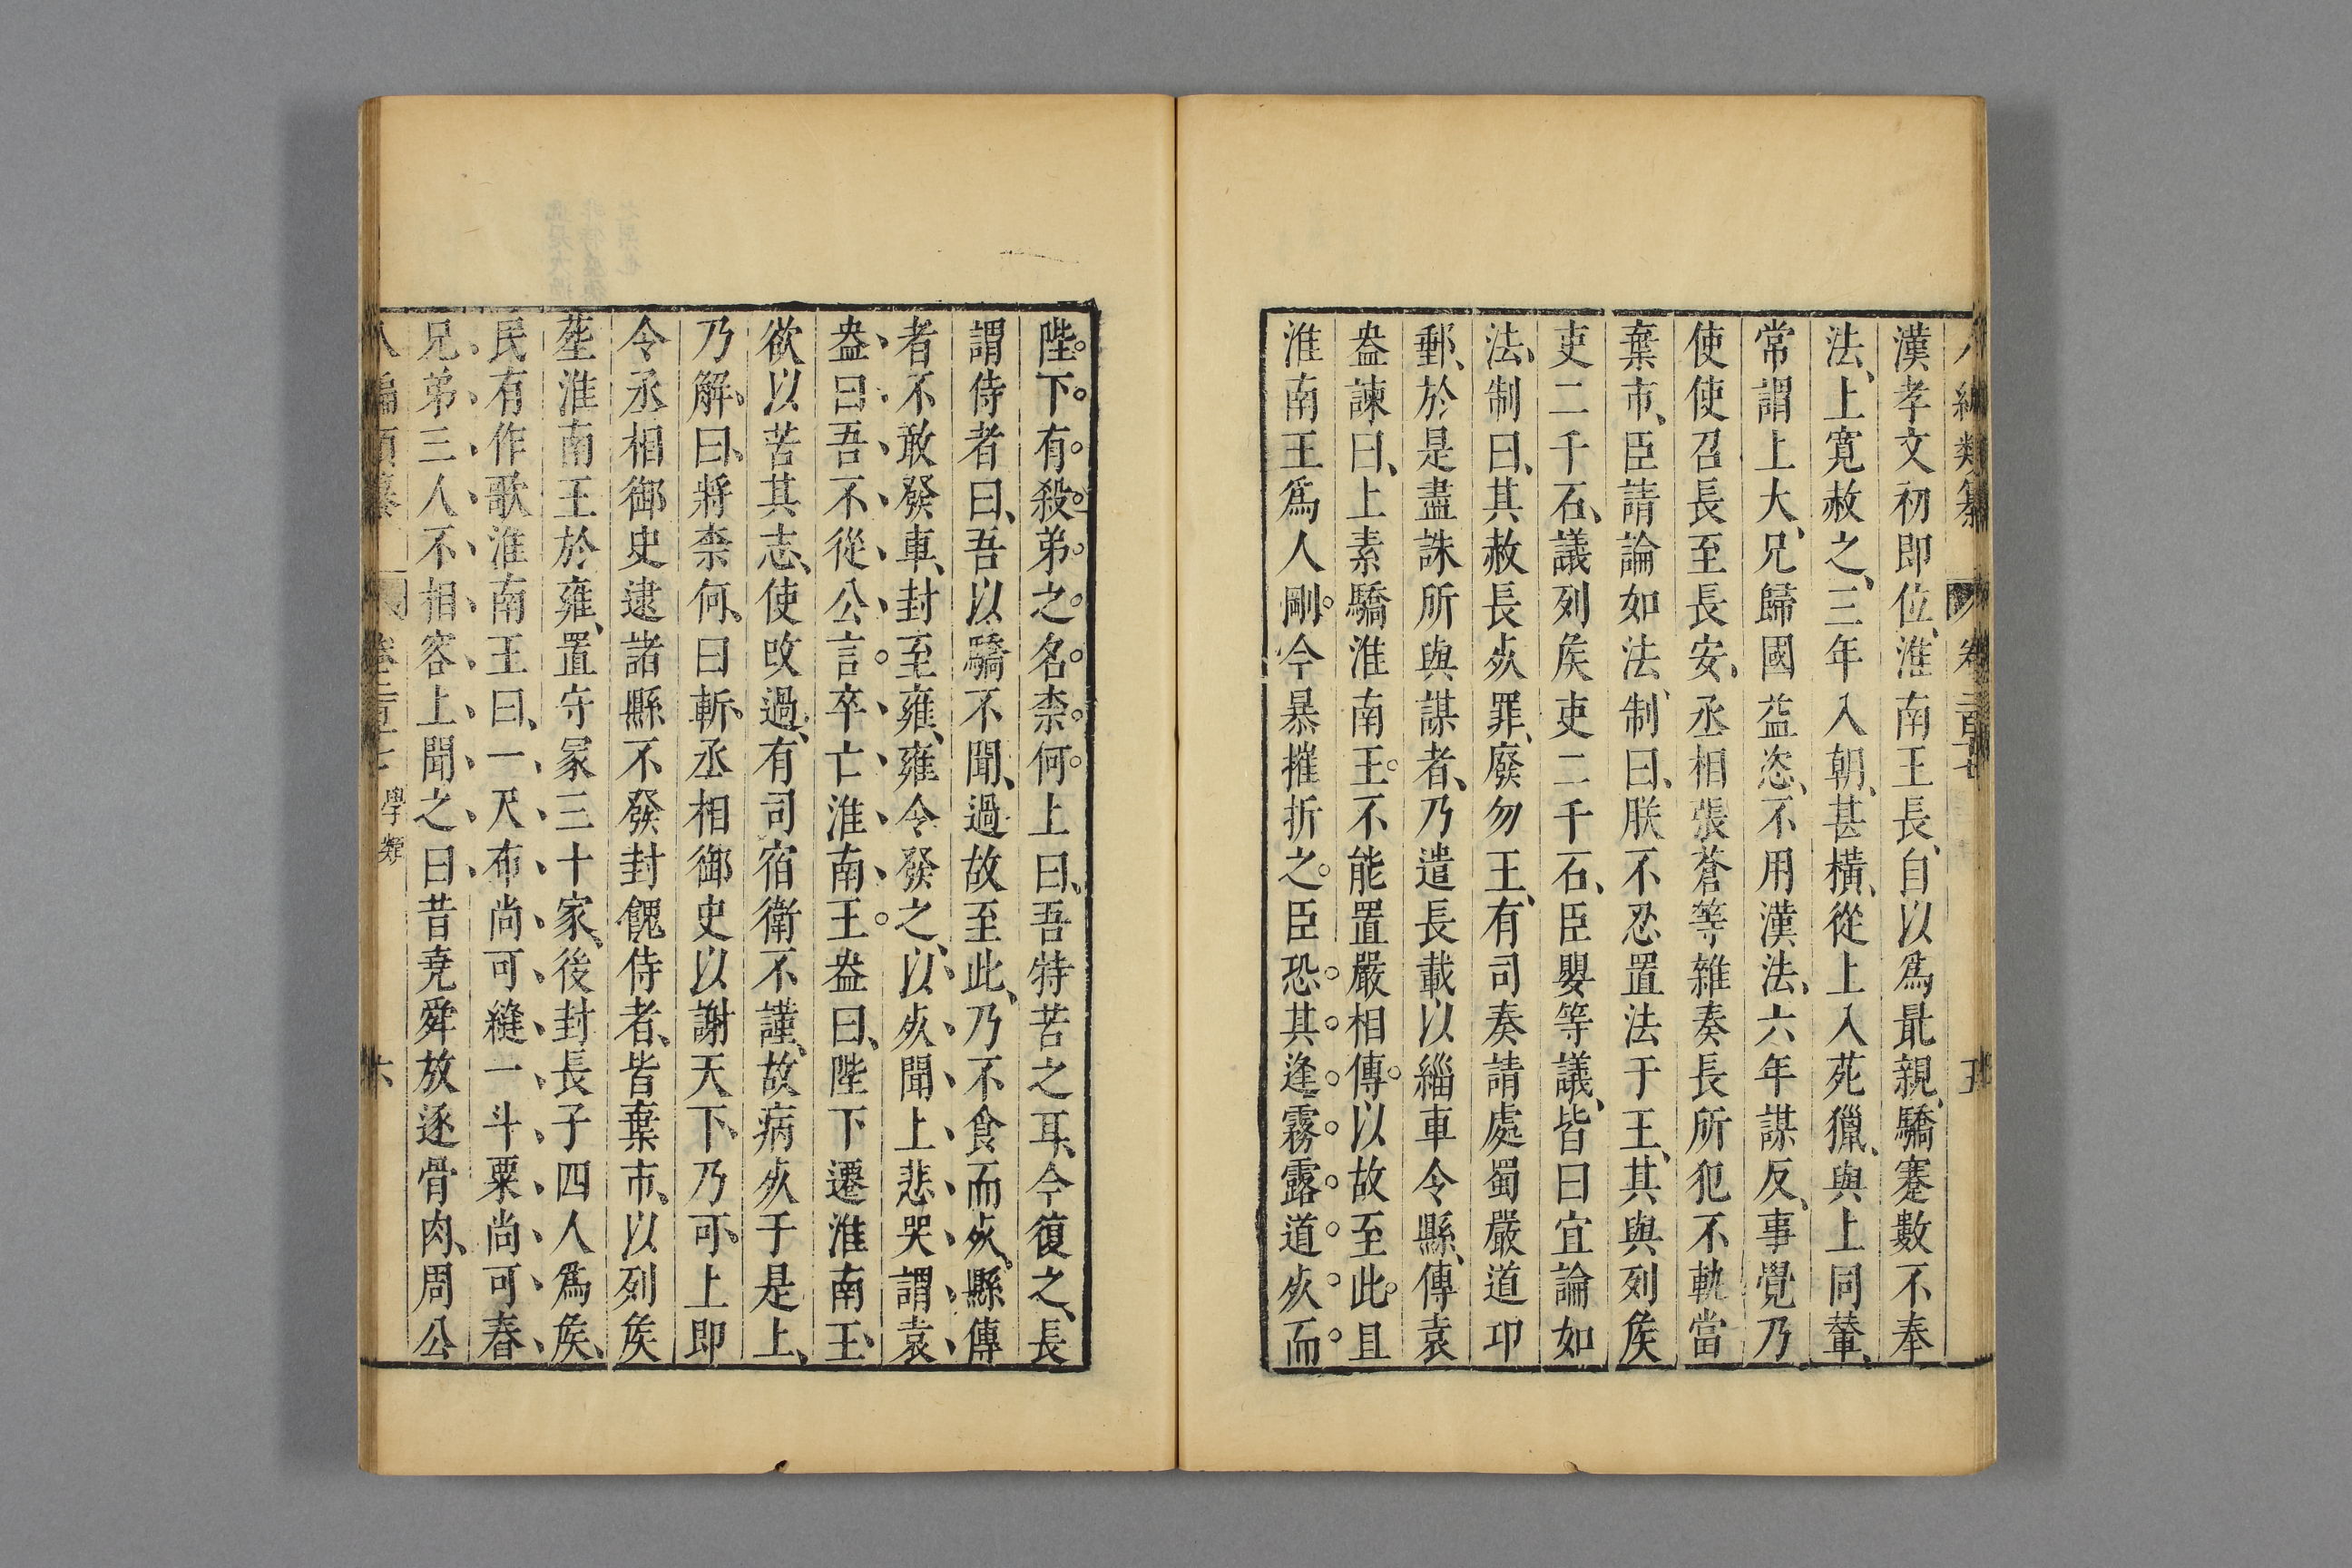 漢孝文初即位、淮南王長、自以爲最親、驕蹇數不奉
法、上寬赦之、三年入朝、甚橫、從上入苑獵、與上同輦、
常謂上大兄、歸國益恣、不用漢法、六年謀反、事覺乃
使使召長至長安、丞相張蒼等雜奏長所犯不軌當
棄市、臣請論如法、制曰、朕不忍置法于王、其與列矦
吏二千石、議列矦吏二千石、臣嬰等議、皆曰宜論如
法、制曰、其赦長死罪、廢勿王、有司奏請處蜀嚴道卭
郵、於是盡誅所與謀者、乃遣長載以緇車令縣、傳袁
盎諫曰、上素驕淮南王。不能置嚴相傳。以故至此。且
淮南王爲人剛。今暴摧折之。臣恐其逢霧露道死而
陛下有殺弟之名柰何上曰、吾特苦之耳、今復之、長
謂侍者曰、吾以驕不聞、過故至此、乃不食而死。縣傳
者不敢發車、封至雍、雍令發之、以死聞上悲哭謂袁
盎曰吾不從公言卒亡淮南王盎曰、陛下遷淮南王、
欲以苦其志、使改過、有司宿衛不謹、故病死于是上、
乃解、曰、將柰何、曰斬、丞相御史以謝天下、乃可、上即
令丞相御史逮諸縣不發封餽侍者、皆棄市、以列矦
塟淮南王於雍、置守冢三十家、後封長子四人爲矦、
民有作歌淮南王曰、一尺布尚可縫一斗粟尚可舂
兄弟三人不相容上聞之曰昔堯舜放逐骨肉、周公
學類
六